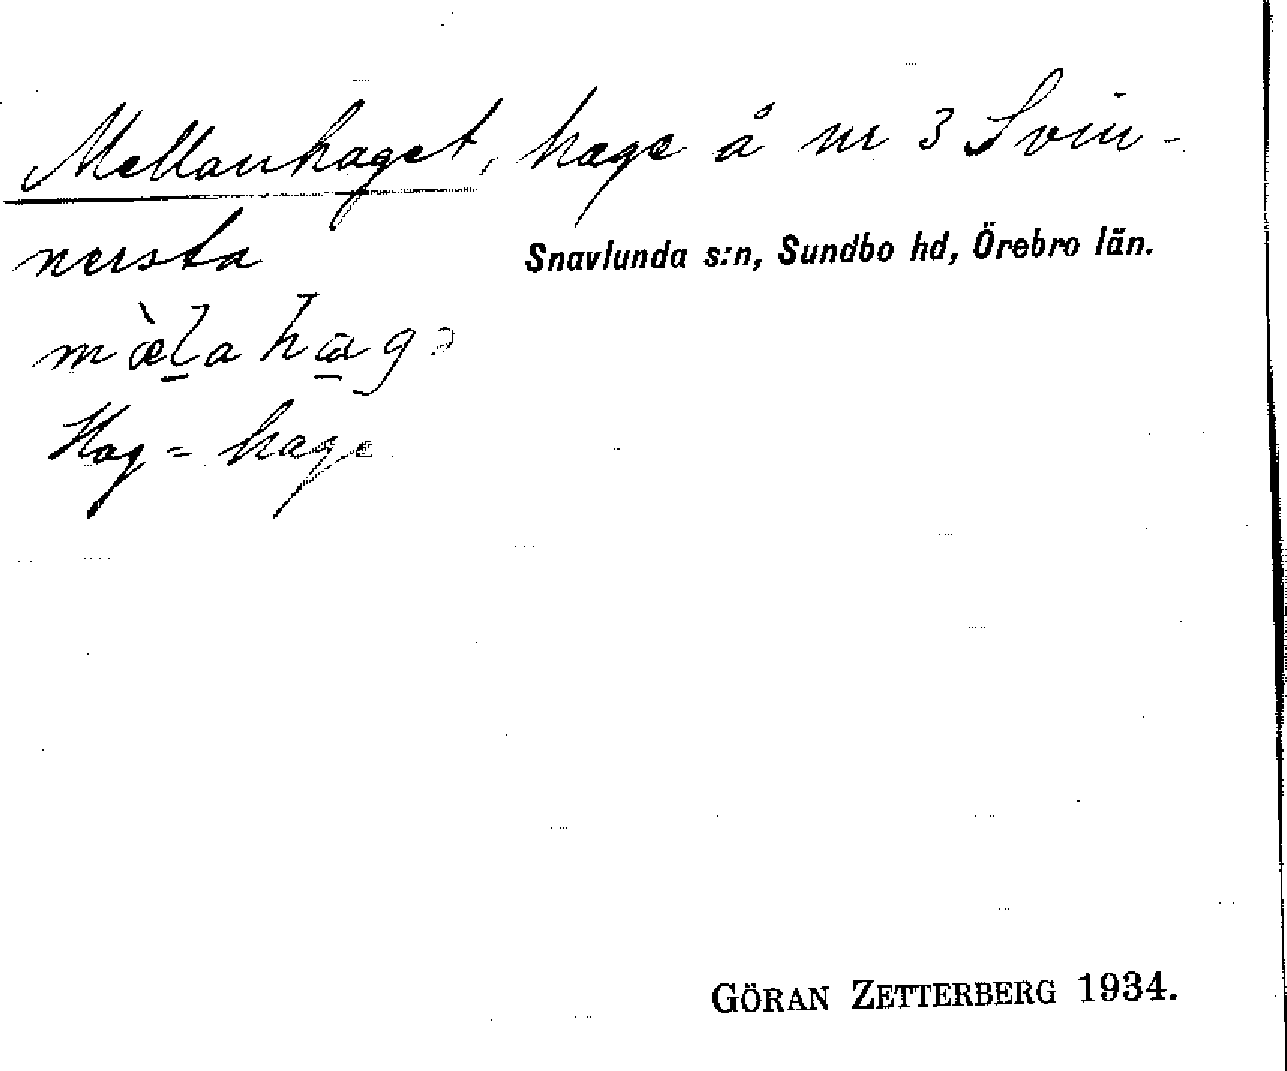 Mellanhaget, hage å nr 3 Svin-
nersta
Snavlunda s:n, Sundbo hd, Örebro län.
mæ̀l̠a ha̠gə
Hag = hage
GÖRAN ZETTERBERG 1934.